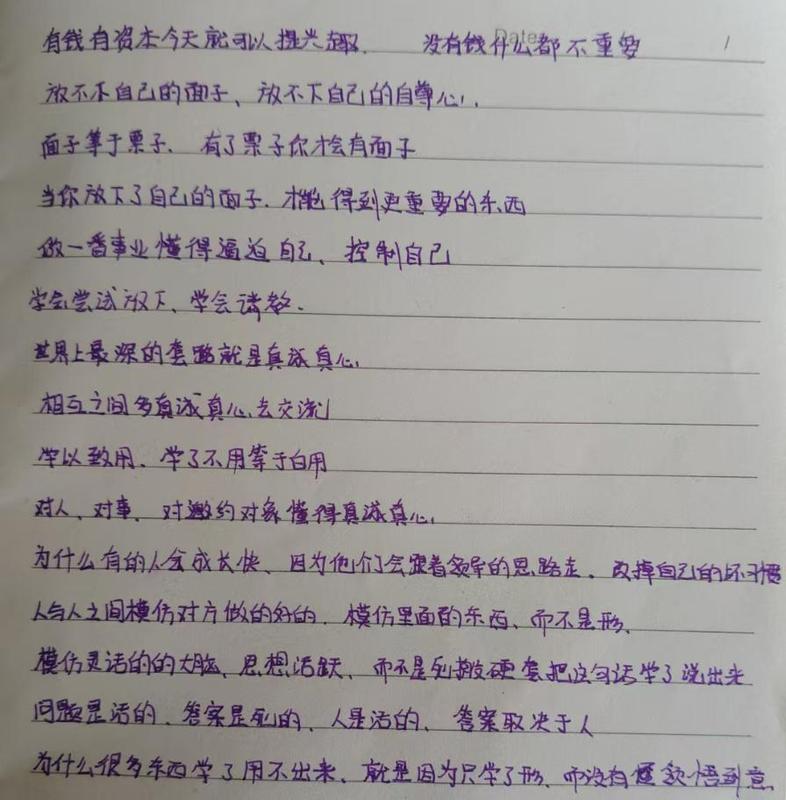 Date 1
有钱有资本今天就可以提兴趣. 没有钱什么都不重要
放不下自己的面子、放不下自己的自尊心.
面子等于票子、有了票子你才会有面子
当你放下了自己的面子.才能得到更重要的东西
做一番事业懂得逼迫自己、控制自己
学会尝试放下、学会请教.
世界上最深的套路就是真诚真心.
相互之间多真诚真心去交流
学以致用、学了不用等于白用
对人、对事、对邀约对象懂得真诚真心.
为什么有的人会成长快、因为他们会跟着领导的思路走.改掉自己的坏习惯
人与人之间模仿对方做的好的、模仿里面的东西、而不是形、
模仿灵活的的大脑、思想活跃、而不是死搬硬套把这句话学了说出来
问题是活的、答案是死的、人是活的、答案取决于人
为什么很多东西学了用不出来、就是因为只学了形、而没有 悟到意.